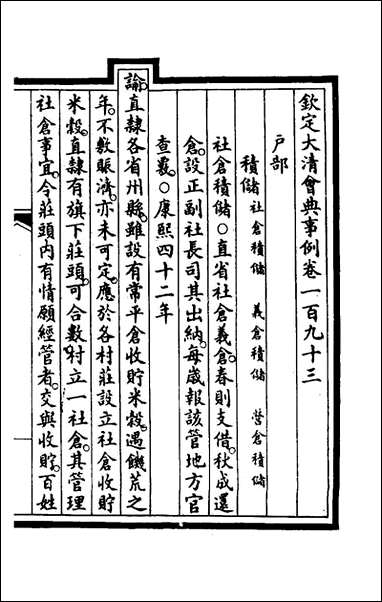 欽定大清會典事例卷一百九十三
戶部
積儲 社倉積儲 義倉積儲 營倉積儲
社倉積儲○直省社倉義倉。春則支借。秋成還
倉。設正副社長司其出納。每歲報該管地方官
查覈。○康熙四十二年
諭。直隸各省州縣。雖設有常平倉收貯米穀。遇饑荒之
年。不敷賑濟。亦未可定。應於各村莊設立社倉收貯
米穀。直隸有旗下莊頭。可合數村立一社倉。其管理
社倉事宜。令莊頭內有情願經管者。交與收貯。百姓